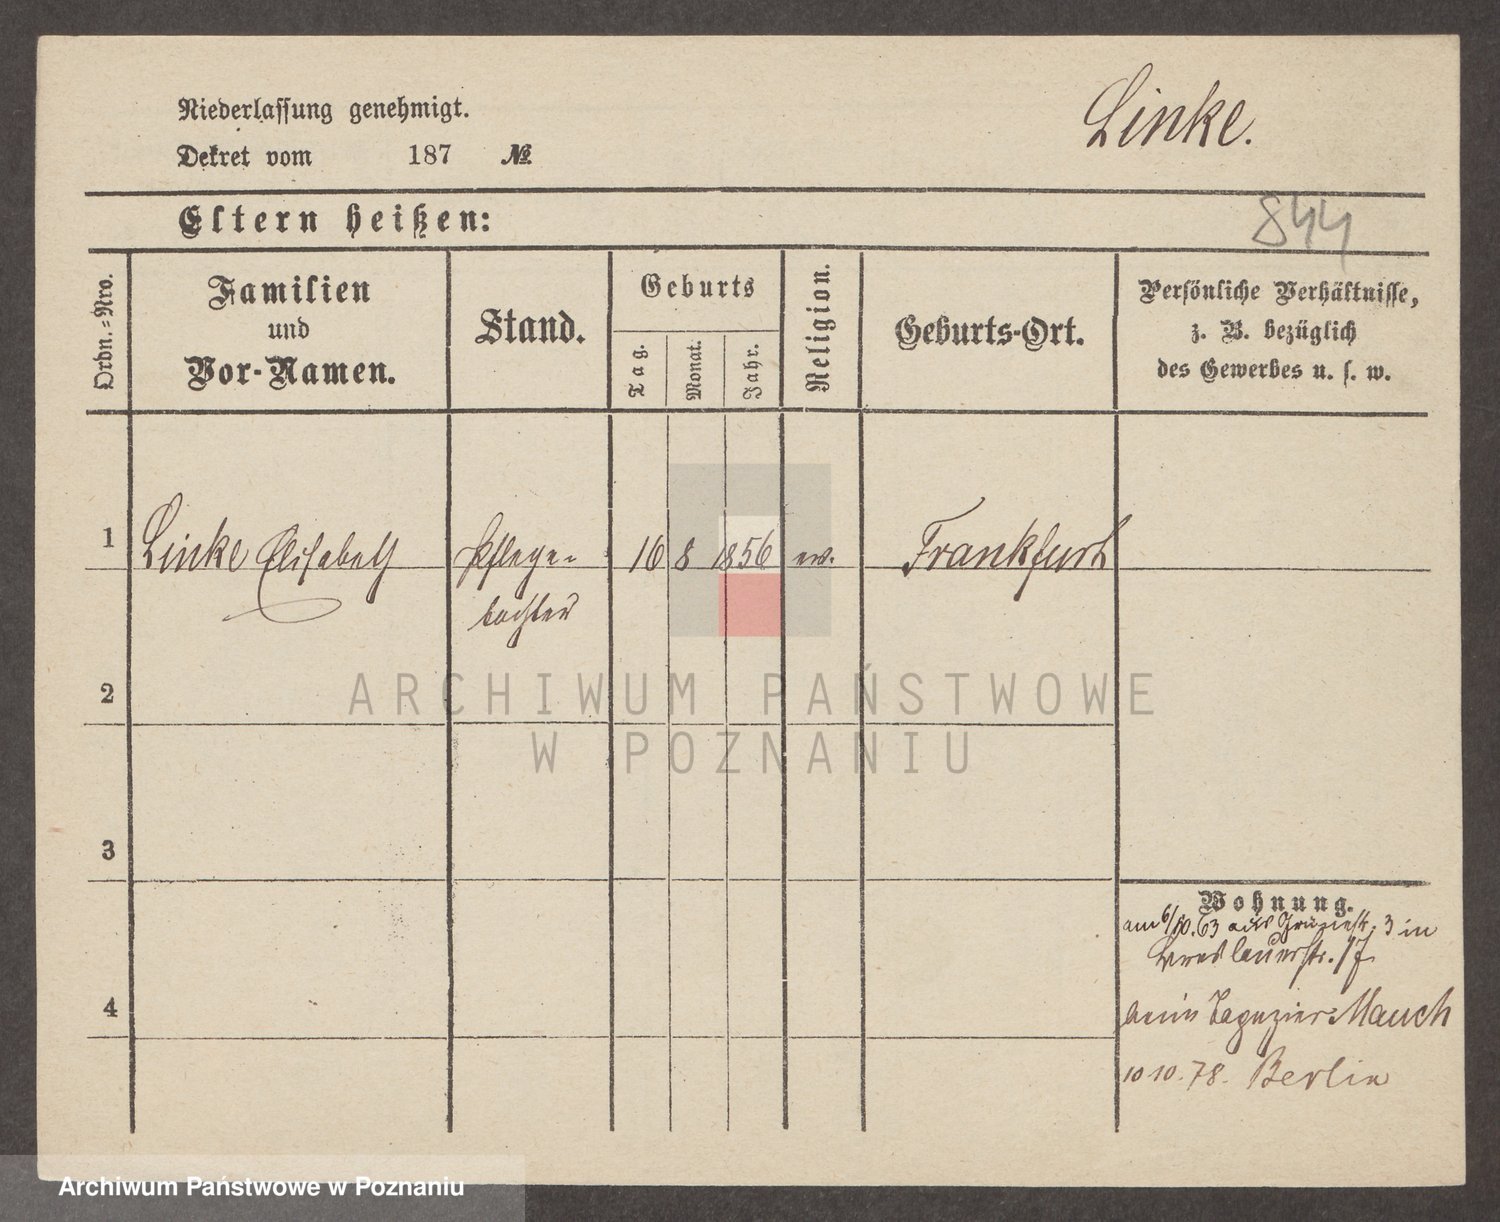 Niederlassung genehmigt.
Dekret vom 187 №
Linke.
844
Eltern heißen:
Ordn.=Nro.
Familien
und
Vor-Namen.
Stand.
Geburts
Tag.
Monat.
Jahr.
Religion.
Geburts-Ort.
Persönliche Verhältnisse,
z. B. bezüglich
des Gewerbes u. s. w.
1 Linke Elisabeth Pflege= 16 8 1856 ev. Frankfurt
tochter
2
3
4
Wohnung.
am 6/10. 63 aus 3 in
Breslauerstr. 17
beim Tapezier Mauch
10 10. 78. Berlin
ARCHIWUM PAŃSTWOWE
W POZNANIU
Archiwum Państwowe w Poznaniu